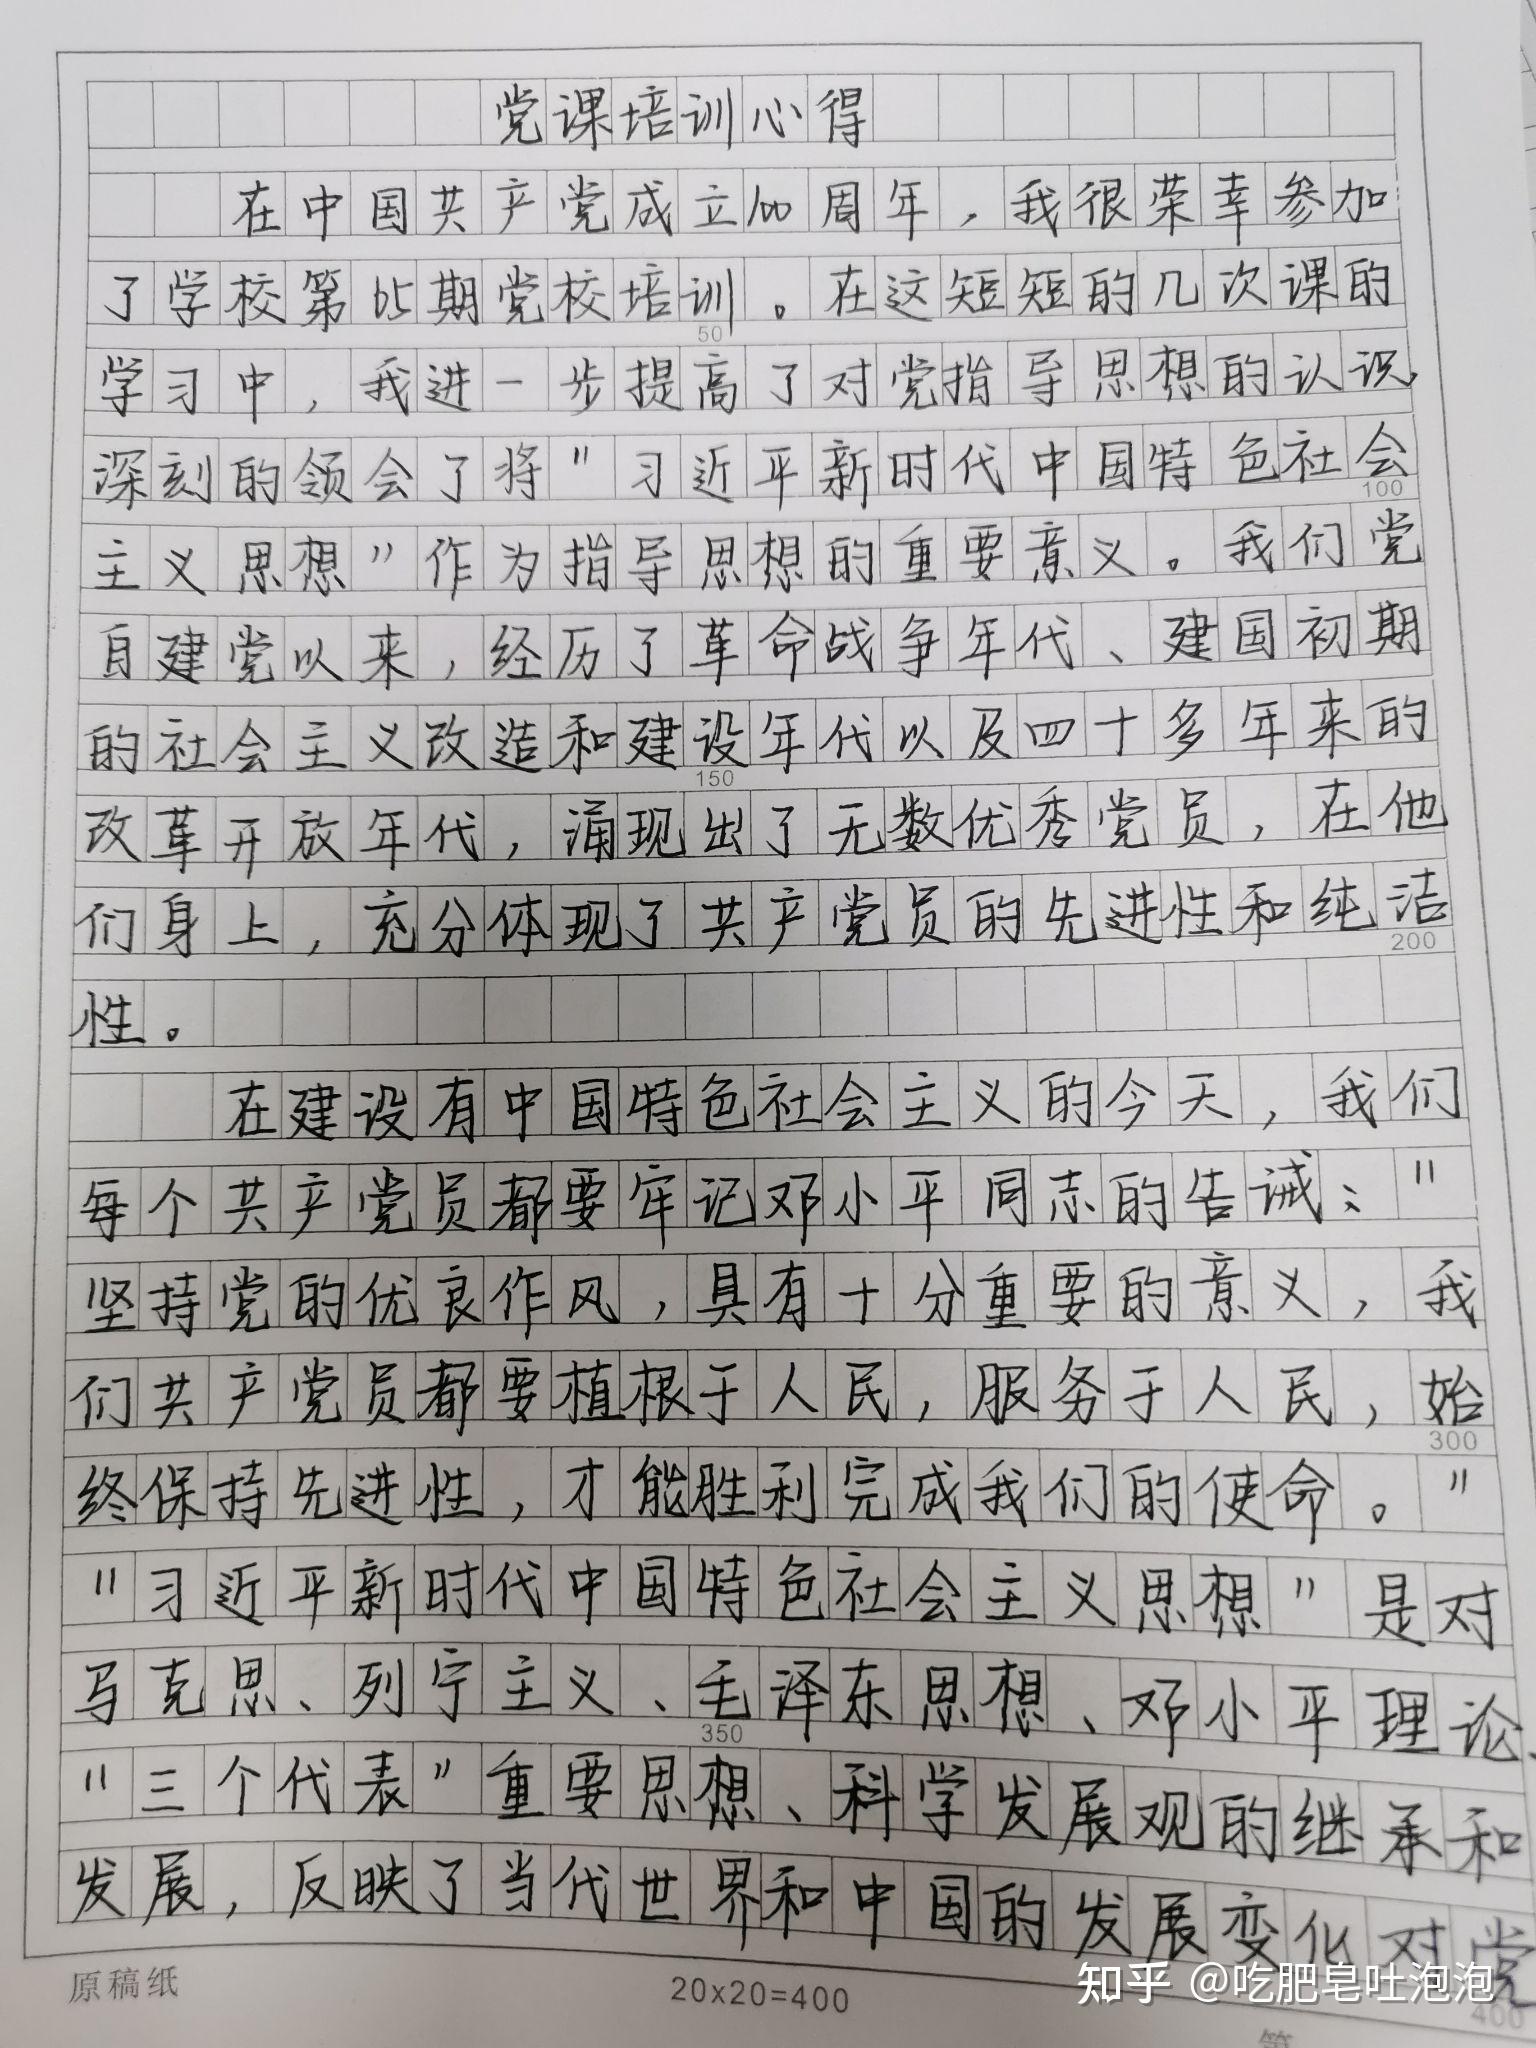 党课培训心得
在中国共产党成立100周年，我很荣幸参加
了学校第65期党校培训。在这短短的几次课的
50
学习中，我进一步提高了对党指导思想的认识，
深刻的领会了将"习近平新时代中国特色社会
100
主义思想"作为指导思想的重要意义。我们党
自建党以来，经历了革命战争年代、建国初期
的社会主义改造和建设年代以及四十多年来的
150
改革开放年代，涌现出了无数优秀党员，在他
们身上，充分体现了共产党员的先进性和纯洁
200
性。
在建设有中国特色社会主义的今天，我们
每个共产党员都要牢记邓小平同志的告诫："
坚持党的优良作风，具有十分重要的意义，我
们共产党员都要植根于人民，服务于人民，始
300
终保持先进性，才能胜利完成我们的使命。"
"习近平新时代中国特色社会主义思想"是对
马克思、列宁主义、毛泽东思想、邓小平理论、
350
"三个代表"重要思想、科学发展观的继承和
发展，反映了当代世界和中国的发展变化对党
400
原稿纸
20x20=400
知乎 @吃肥皂吐泡泡